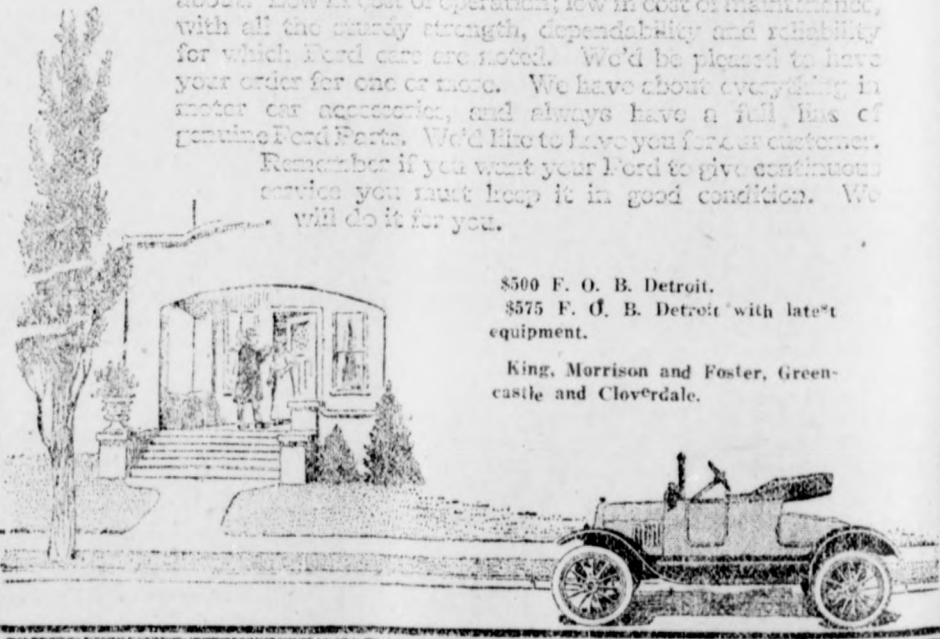 Low in cost of operation; low in cost of maintenance,
with all the sturdy strength, dependability and reliability
for which Ford cars are noted. We'd be pleased to have
your order for one or more. We have about everything in
motor car accessories, and always have a full line of
genuine Ford Parts. We'd like to have you for our customer.
Remember if you want your Ford to give continuous
service you must keep it in good condition. We
will do it for you.
$500 F. O. B. Detroit.
$575 F. O. B. Detroit with latest
equipment.
King, Morrison and Foster, Green-
castle and Cloverdale.